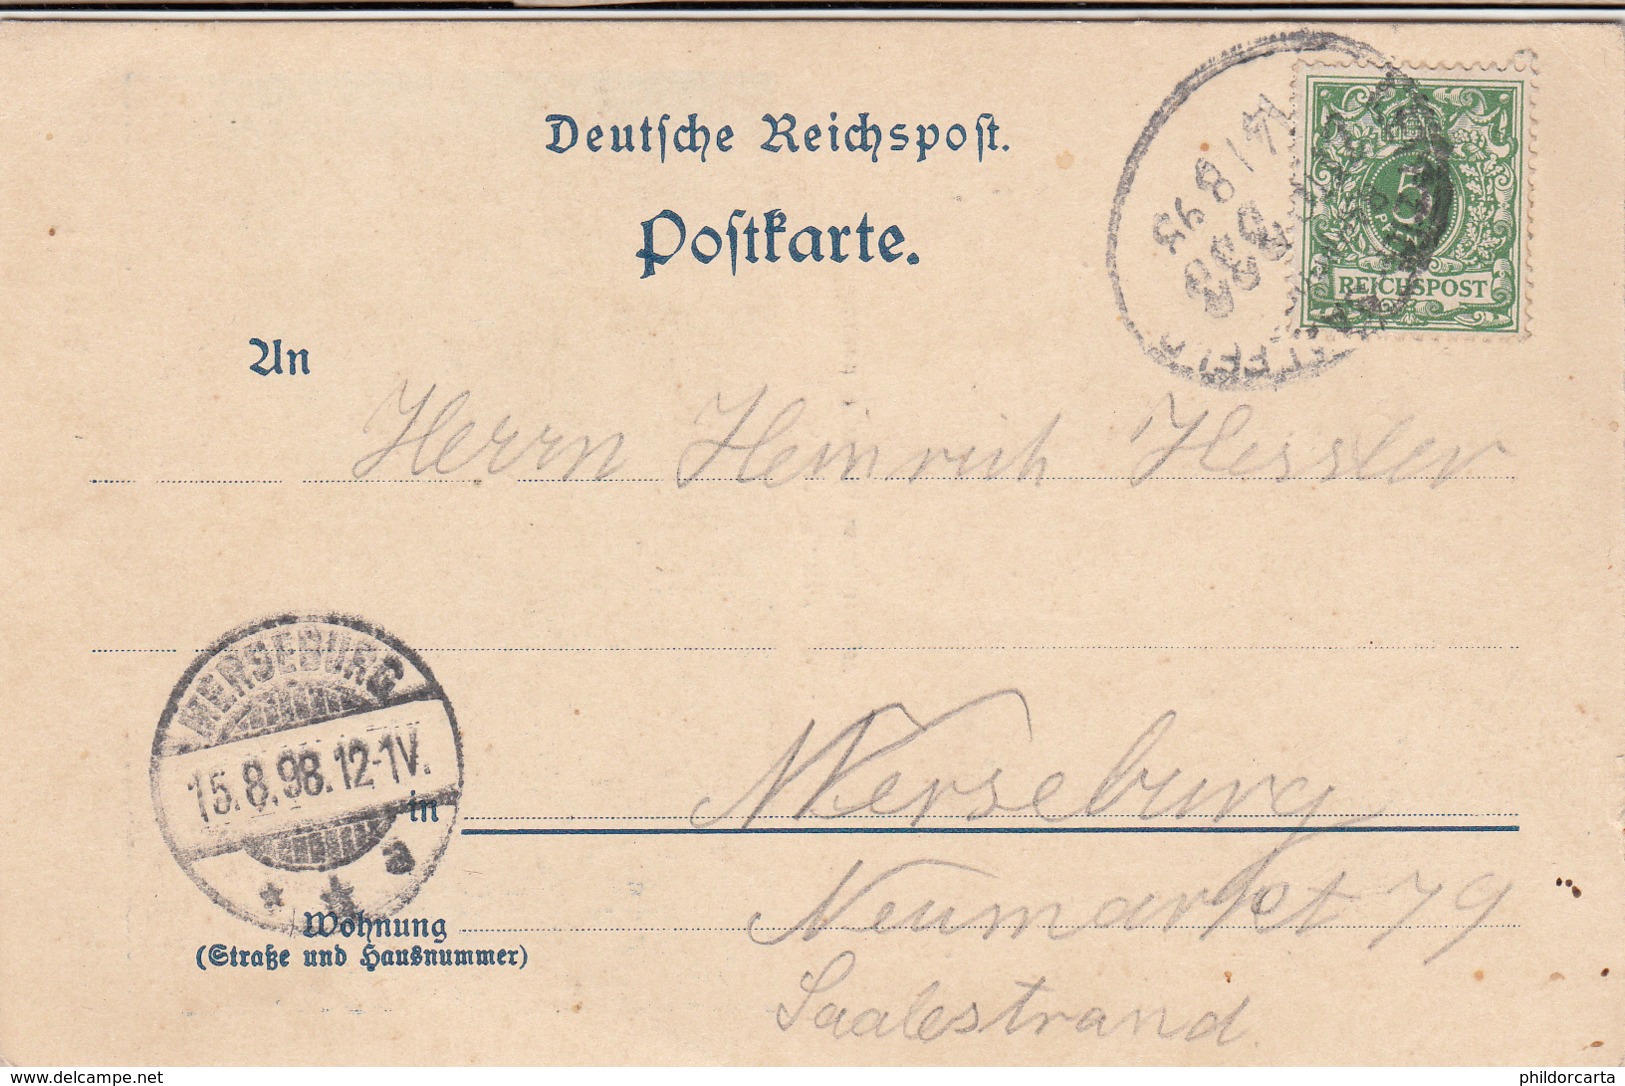 Deutsche Reichspost.
Postkarte.
5
REICHSPOST
An
Herrn Heinrich Hessler
MERSEBURG
15.8.98.12-1V.
a
in Merseburg
Wohnung Neumarkt 79
(Straße und Hausnummer)
Saalestrand
www.delcampe.net
phildorcarta